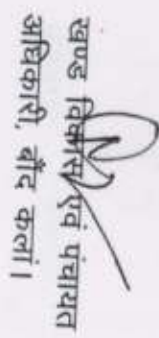 खण्ड विकास एवं पंचायत
अधिकारी, बौंद कलां।